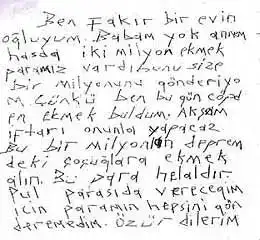 Ben Fakır bir evin
oğluyum. Babam yok annem
hasda iki milyon ekmek
paramız vardı bunu size
bir milyonunu gönderiyo
m. Çünkü ben bu gün cöpd
en ekmek buldum. Akşam
iftarı onunla yapacaz
Bu bir milyonlan deprem
deki çocuğlara ekmek
alın. Bu para helaldır.
Pul parasıda vereceğim
için paramın hepsini gön
deremedim. Özür dilerim